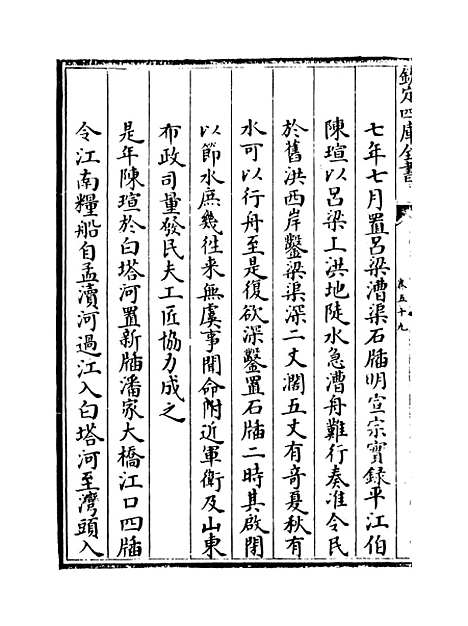 欽定四庫全書
卷五十九
七年七月置呂梁漕渠石牐明宣宗實錄平江伯
陳瑄以呂梁上洪地陡水急漕舟難行奏准令民
於舊洪西岸鑿梁渠深二丈濶五丈有奇夏秋有
水可以行舟至是復欲深鑿置石牐二時其啟閉
以節水庶幾往來無虞事聞命附近軍衛及山東
布政司量發民夫工匠協力成之
是年陳瑄於白塔河置新牐潘家大橋江口四牐
令江南糧船自孟瀆河過江入白塔河至灣頭入